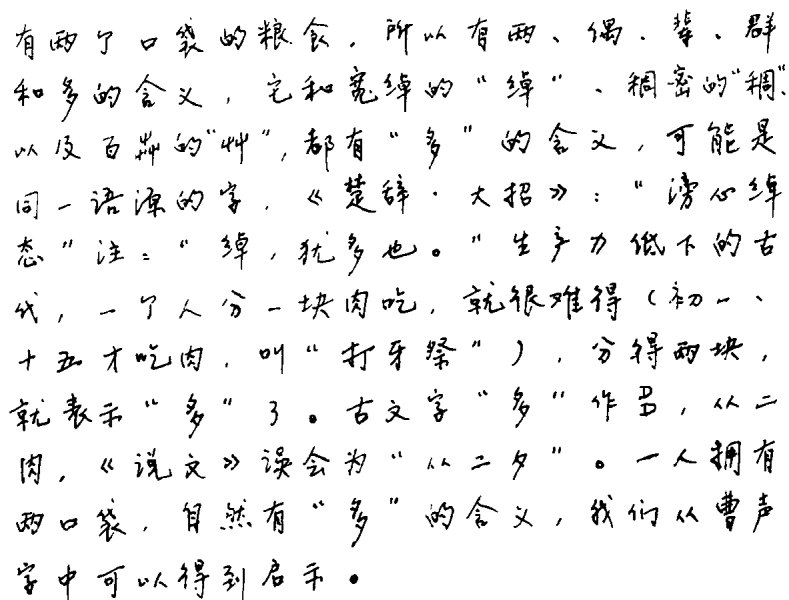 有两个口袋的粮食，所以有两、偶、辈、群
和多的含义，它和宽绰的"绰"、稠密的"稠"、
以及百卉的"艸"，都有"多"的含义，可能是
同一语源的字，《楚辞·大招》："滂心绰
态"注："绰，犹多也。"生产力低下的古
代，一个人分一块肉吃，就很难得（初一、
十五才吃肉，叫"打牙祭"），分得两块，
就表示"多"了。古文字"多"作，从二
肉，《说文》误会为"从二夕"。一人拥有
两口袋，自然有"多"的含义，我们从曹声
字中可以得到启示。